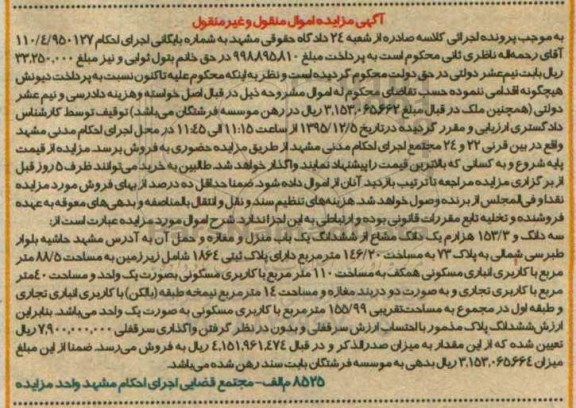 آگهی مزایده اموال منقول و غیر منقول
به موجب پرونده اجرائی کلاسه صادره از شعبه ۲۴ دادگاه حقوقی مشهد به شماره بایگانی اجرای احکام ۱۱۰/۴/۹۵۰۱۲۷
آقای رحمه‌اله ناظری ثانی محکوم است به پرداخت مبلغ ۹۹۸۸۹۵۸۱۰ در حق خانم بتول توابی و نیز مبلغ ۳۳,۲۵۰,۰۰۰
ریال بابت نیم‌عشر دولتی در حق دولت محکوم گردیده است و نظر به اینکه محکوم علیه تاکنون نسبت به پرداخت دیونش
هیچگونه اقدامی ننموده حسب تقاضای محکوم له اموال مشروحه ذیل در قبال اصل خواسته و هزینه دادرسی و نیم عشر
دولتی (همچنین ملک در قبال مبلغ ۳,۱۵۳,۰۶۵۶۶۲ ریال در رهن موسسه فرشتگان می‌باشد) توقیف توسط کارشناس
دادگستری ارزیابی و مقرر گردیده در تاریخ ۱۳۹۵/۱۲/۵ از ساعت ۱۱:۱۵ الی ۱۱:۴۵ در محل اجرای احکام مدنی مشهد
واقع در بین قرنی ۲۲ و ۲۴ مجتمع اجرای احکام مدنی مشهد از طریق مزایده حضوری به فروش برسد. مزایده از قیمت
پایه شروع و به کسانی که بالاترین قیمت را پیشنهاد نمایند واگذار خواهد شد. طالبین به خرید می‌توانند ظرف ۵ روز قبل
از برگزاری مزایده مراجعه تا ترتیب بازدید آنان از اموال داده شود. ضمنا حداقل ده درصد از بهای فروش مورد مزایده
نقدا و فی‌المجلس از برنده وصول خواهد شد. هزینه‌های تنظیم سند و نقل و انتقال بالمناصفه و بدهی‌های معوقه به عهده
فروشنده و تخلیه تابع مقررات قانونی بوده و ارتباطی به این اجرا ندارد شرح اموال مورد مزایده عبارت است از:
سه دانگ و ۱۵۳/۳ هزارم یک دانگ مشاع از ششدانگ یک باب منزل و مغازه و حمل آن به آدرس مشهد حاشیه بلوار
طبرسی شمالی به پلاک ۷۳ به مساحت ۱۴۶/۲۰ مترمربع دارای پلاک ثبتی ۱۸۶۴ شامل زیرزمین به مساحت ۸۸/۵ متر
مربع با کاربری انباری مسکونی همکف به مساحت ۱۱۰ متر مربع با کاربری مسکونی بصورت یک واحد و مساحت ۴۰ متر
مربع با کاربری تجاری و به صورت دو دربند مغازه و مساحت ۱۴ متر مربع نیمخه طبقه (بالکن) با کاربری انباری تجاری
و طبقه اول در مجموع به مساحت تقریبی ۱۵۵/۹۹ مترمربع با کاربری مسکونی به صورت یک واحد می‌باشد. بنابراین
ارزش ششدانگ پلاک مذمور با احتساب ارزش سرقفلی و بدون در نظر گرفتن واگذاری سرقفلی ۷,۹۰۰,۰۰۰,۰۰۰ ریال
تعیین شده که از این مقدار به میزان صدرالذکر و در قبال ۴,۱۵۱,۹۶۱,۴۷۴ ریال به فروش می‌رسد. ضمنا از این مبلغ
میزان ۳,۱۵۳,۰۶۵۶۶۴ ریال بدهی به موسسه فرشتگان بابت سند رهن شده می‌باشد.
۸۵۲۵ م‌الف - مجتمع قضایی اجرای احکام مشهد واحد مزایده